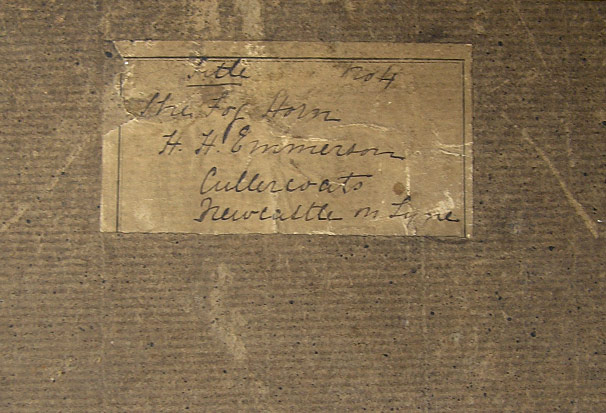 Title No 4
The Fog Horn
H. H. Emmerson
Cullercoats
Newcastle on Tyne